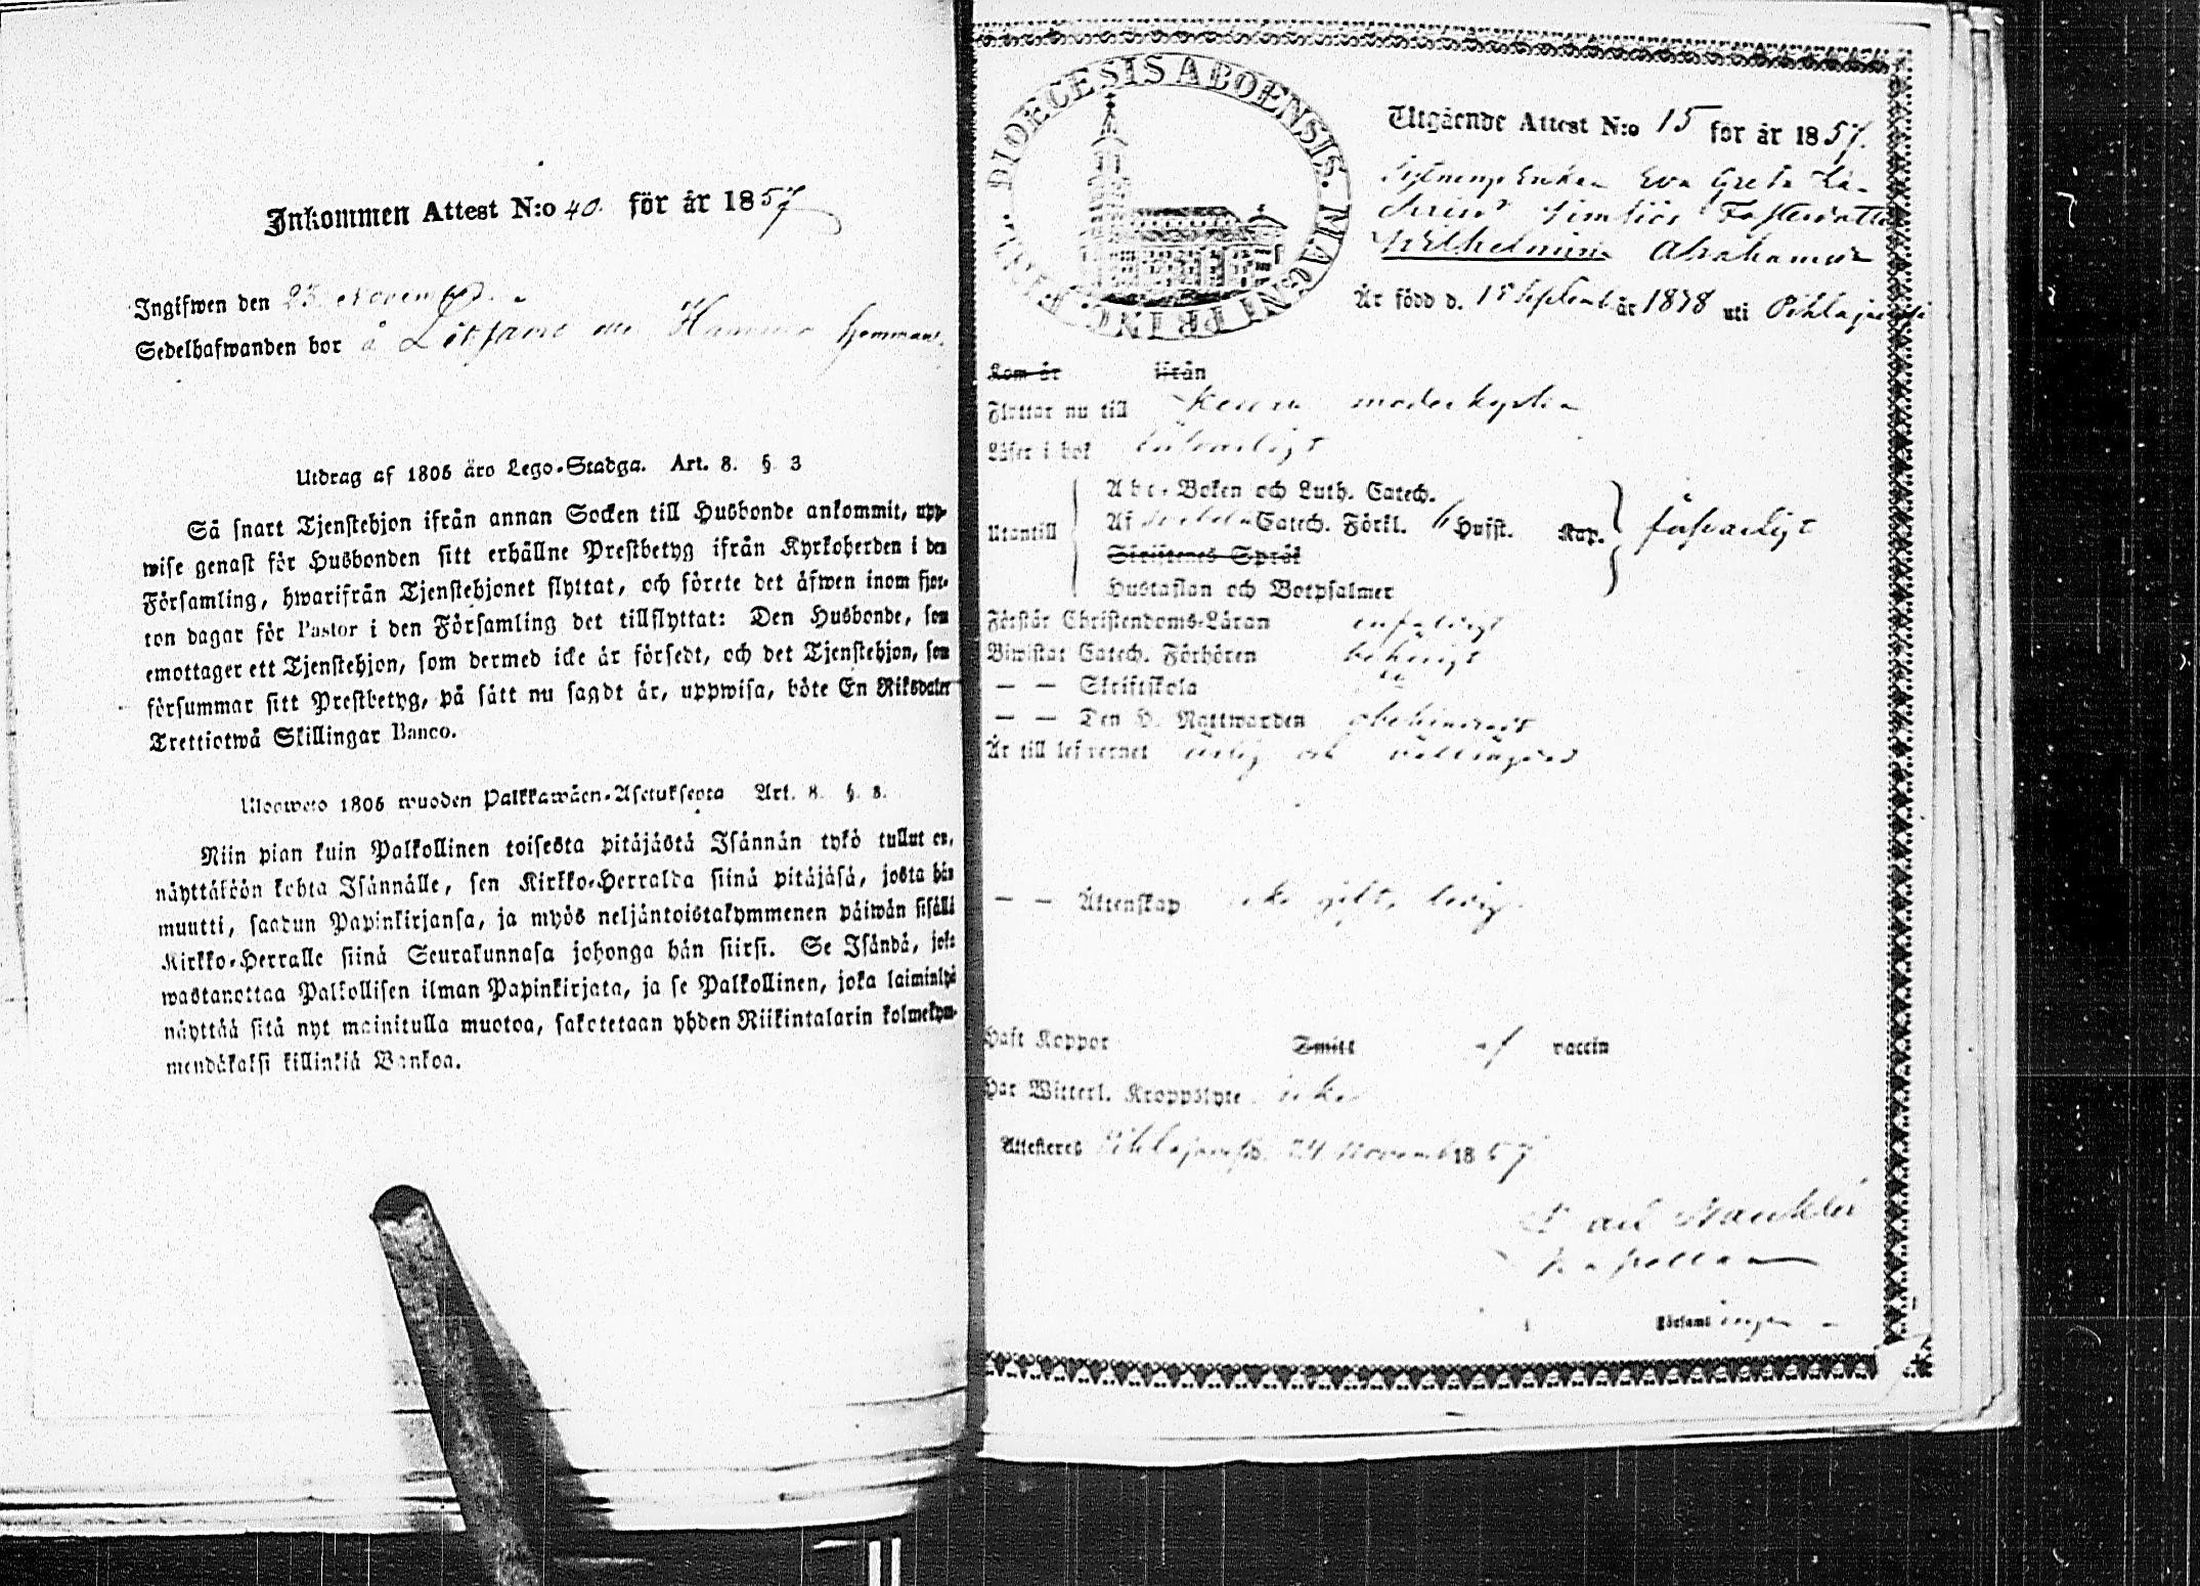 Inkommen Attest N:o 40. för år 1857
Ingifwen den 25 November
Sedelhafwanden bor å
Utdrag af 1805 års Lego-Stadga. Art. 8. §. 3
Så snart Tjenstehjon ifrån annan Socken till Husbonde ankommit, upp-
wise genast för Husbonden sitt erhållne Prestbetyg ifrån Kyrkoherden i den
Församling, hwarifrån Tjenstehjonet flyttat, och förete det äfwen inom fjor-
ton dagar för Pastor i den Församling det tillflyttat: Den Husbonde, som
emottager ett Tjenstehjon, som dermed icke är försedt, och det Tjenstehjon, som
försummar sitt Prestbetyg, på sätt nu sagdt är, uppwisa, böte En Riksdaler
Trettiotwå Skillingar Banco.
Ulosweto 1805 wuoden Palkkawäen-Asetuksesta Art. 8. §. 3.
Niin pian kuin Palkollinen toisesta pitäjästä Isännän tykö tullut on,
näyttäköön kohta Isännälle, sen Kirkko-Herralda siinä pitäjäsä, josta hän
muutti, saadun Papinkirjansa, ja myös neljäntoistakymmenen päiwän sisällä
Kirkko-Herralle siinä Seurakunnasa johonga hän siirsi. Se Isändä, joka
wastanottaa Palkollisen ilman Papinkirjata, ja se Palkollinen, joka laiminlyö
näyttää sitä nyt mainitulla muotoa, sakotetaan yhden Riikintalarin kolmekym-
mendäkaksi killinkiä Bankoa.
DIOECESIS ABOENSIS. MAGNI PRINC.
Utgående Attest N:o 15 för år 1857.
Enkan Eva Greta
Wilhelmina Abrahamsd
Är född d. 18 Septemb år 1838 uti Pihlajav
Kom år ifrån
Flyttar nu till moderkyrkan
Läser i bok försvarligt
Utantill
Abc-Boken och Luth. Catech.
Af Catech. Förkl. 6 Hufst. Kap. försvarligt
Skriftenes Språk
Hustaflan och Botpsalmer
Förstår Christendoms-Läran enfaldigt
Biwistat Catech. Förhören behörigt
— — Skriftskola
— — Den H. Nattwarden obehindradt
Är till lefvernet ärlig och
— — Äktenskap icke gift, ledig
Haft Koppor Smitt af vaccin
Har Witterl. Kroppslyte icke
Attesteras d. 24 November 1857
Nauklér
Kapellan
Församlingen